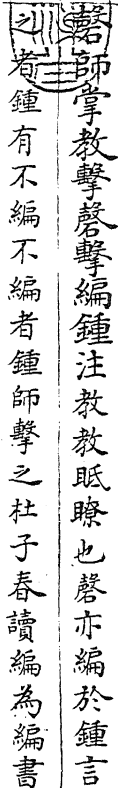 磬師掌教擊磬擊編鍾注教教眂瞭也磬亦編於鍾言
之者鍾有不編不編者鍾師擊之杜子春讀編為編書